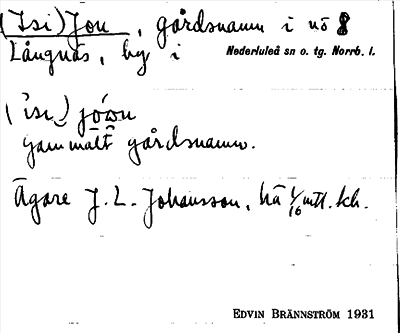 (Isi) Jon, gårdsnamn i nö 8
Långnäs, by i Nederluleå sn o. tg. Norrb. l.
(isi) jo
gammält gårdsnamn.
Ägare J. L. Johansson, hä 1/16 mtl. sk.
EDVIN BRÄNNSTRÖM 1931